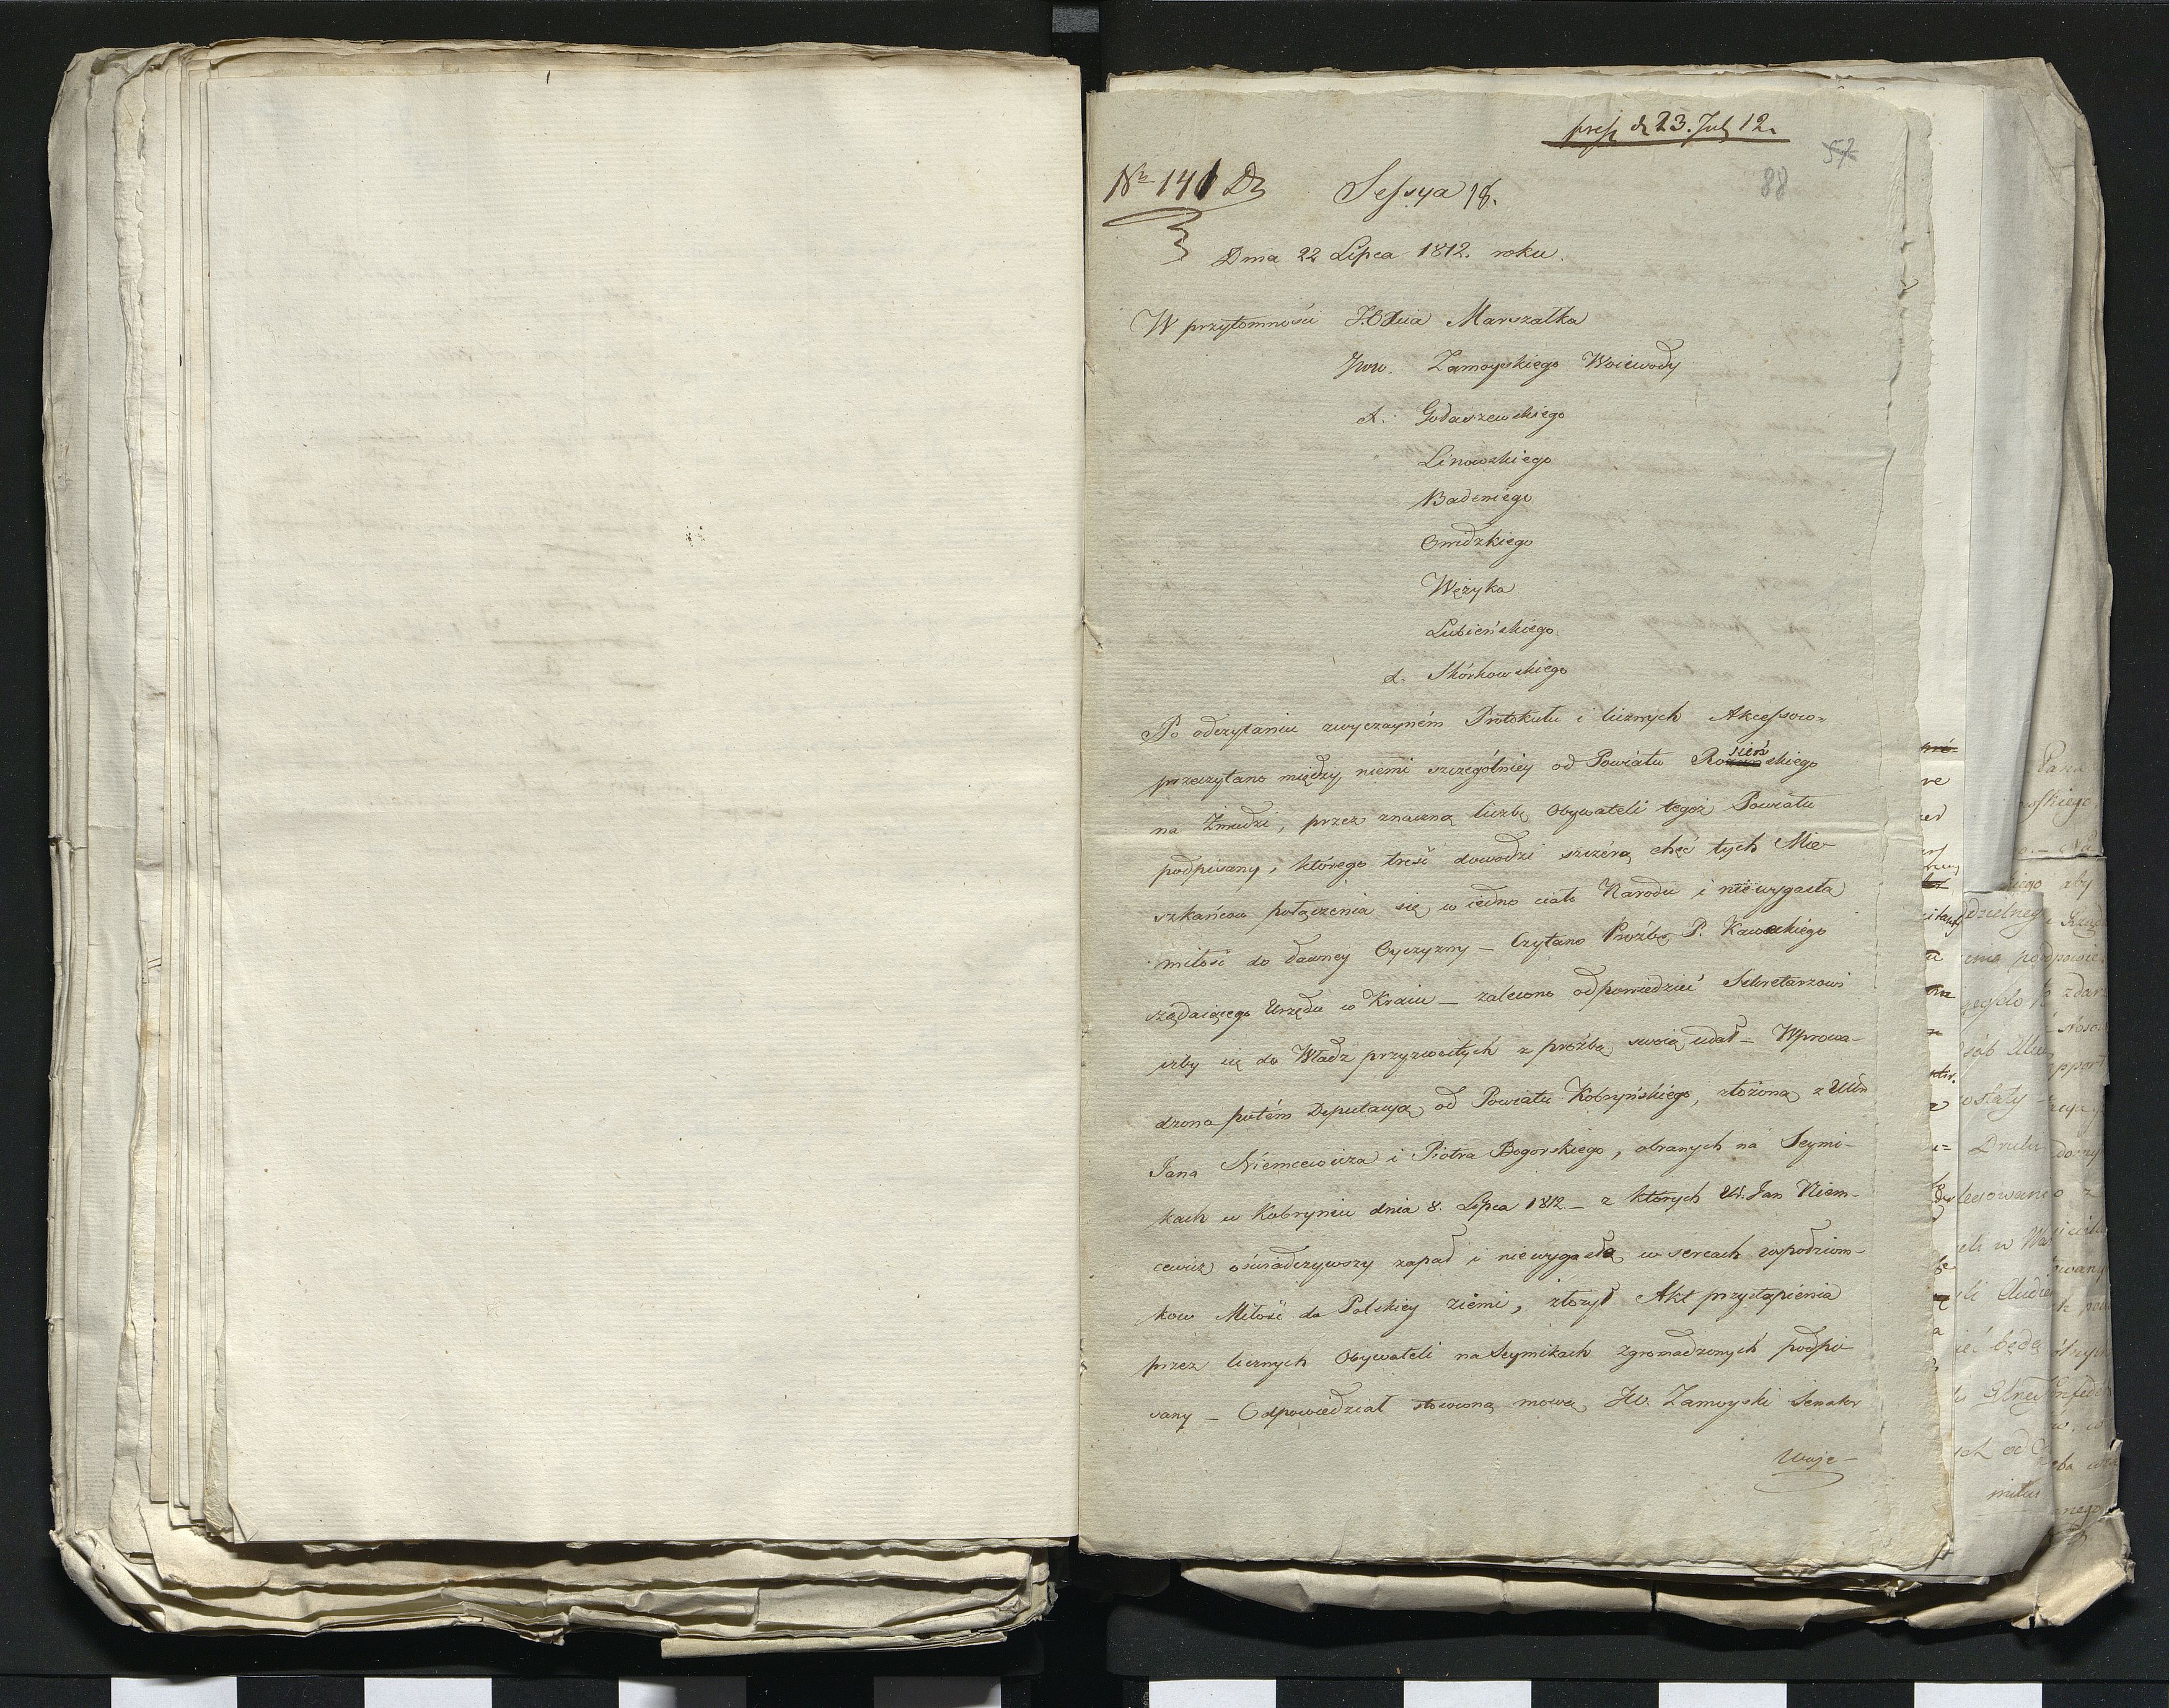 pres d 23. July 12.
57
88
No 141 Dz
Sessya 18.
Dnia 22 Lipca 1812. roku.
W przytomności JOXcia Marszałka
JWW. Zamoyskiego Woiewody
d: Godaszewskiego
Linowskiego
Badeniego
Owidzkiego
Wężyka
Lubieńskiego
d. Skórkowskiego
Po odczytaniu zwyczayném Protokułu i licznych Akcessow-
przeczytano między niemi szczególniey od Powiatu Rosieńskiego
na Zmudzi, przez znaczną liczbę Obywateli tegoż Powiatu
podpisany, którego treść dowodzi szczérą chęć tych Mie-
szkańców połączenia się w iedno ciało Narodu i niewygasłą
miłość do dawney Oyczyzny - Czytano Prożbę P. Kaweckiego
żądaiącego Urzędu w Kraiu - zalecono odpowiedzieć Sekretarzowi
iżby się do Władz przyzwoitych z prożbą swoią udał - Wprowa-
dzona potém Deputacya od Powiatu Kobryńskiego, złożona z UUr
Jana Niemcewicza i Piotra Bogorskiego, obranych na Seymi-
kach w Kobryniu dnia 8. Lipca 1812 - z których Ur. Jan Niem-
cewicz oświadczywszy zapał i niewygasłą w sercach wspołziom-
kow Miłość do Polskiey ziemi, złożył Akt przystąpienia
przez licznych Obywateli na Seymikach zgromadzonych podpi-
sany - Odpowiedział stosowną mową JW. Zamoyski Senator
Woje-